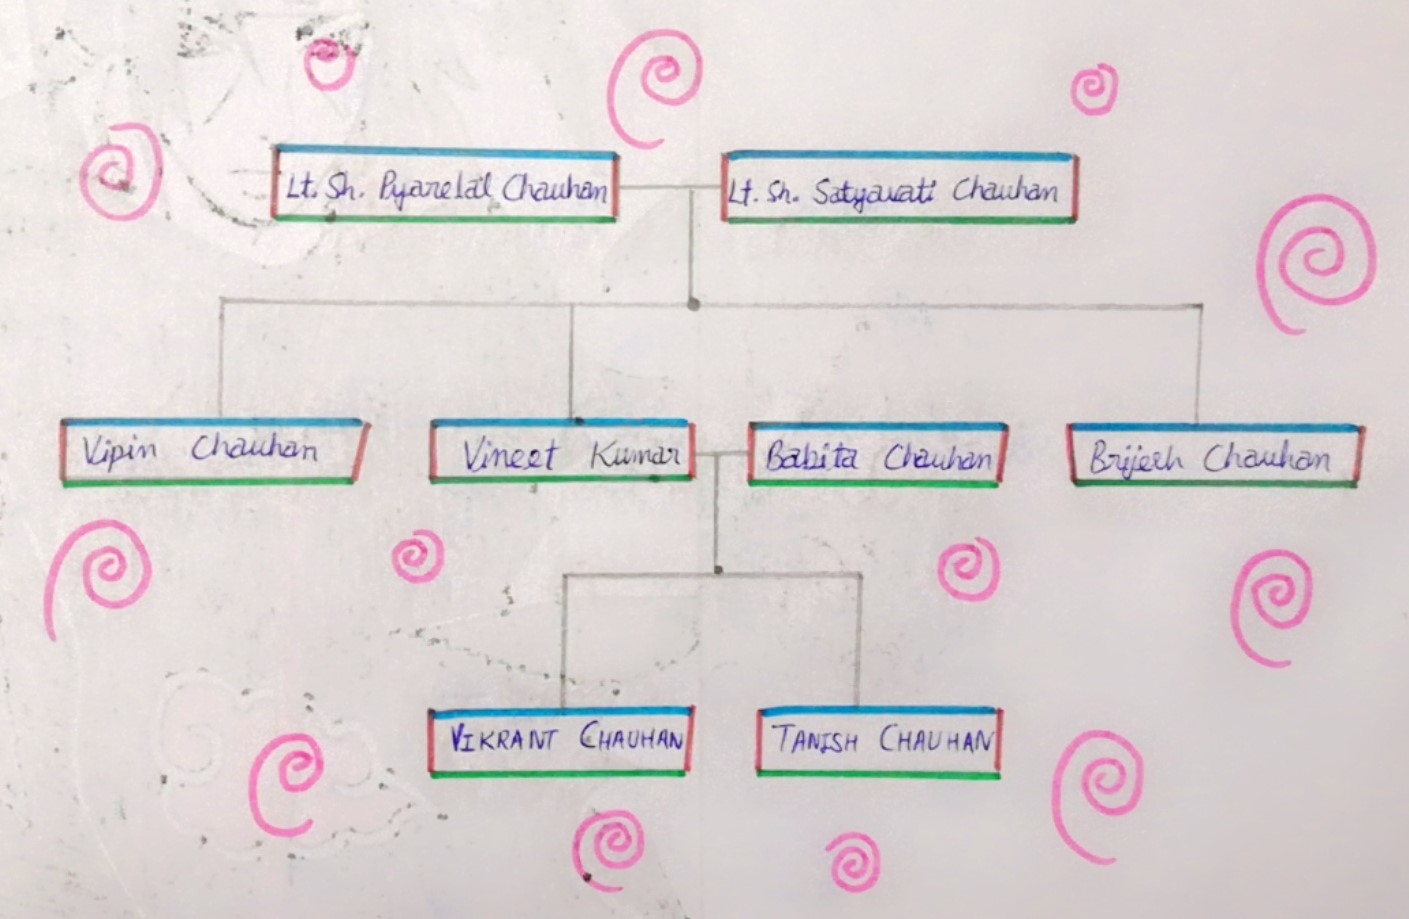 Lt. Sh. Pyarelal Chauhan
Lt. Sh. Satyavati Chauhan
Vipin Chauhan
Vineet Kumar
Babita Chauhan
Brijesh Chauhan
VIKRANT CHAUHAN
TANISH CHAUHAN